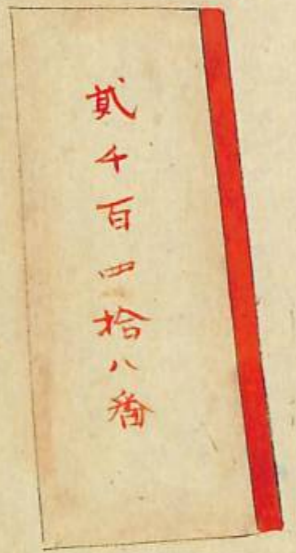 貳千百四拾八番